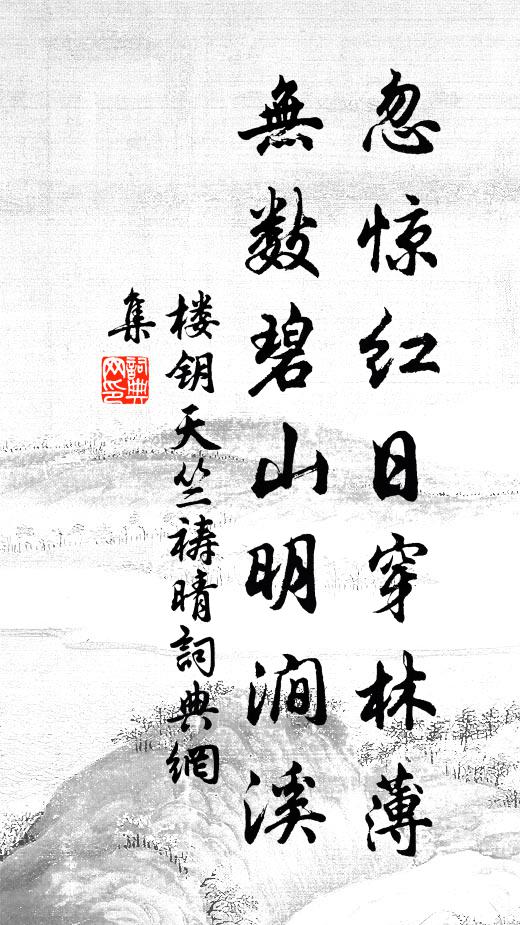 忽惊红日穿林薄
無数碧山明涧溪
楼钥天竺祷晴詞典網
集
詞典
网印